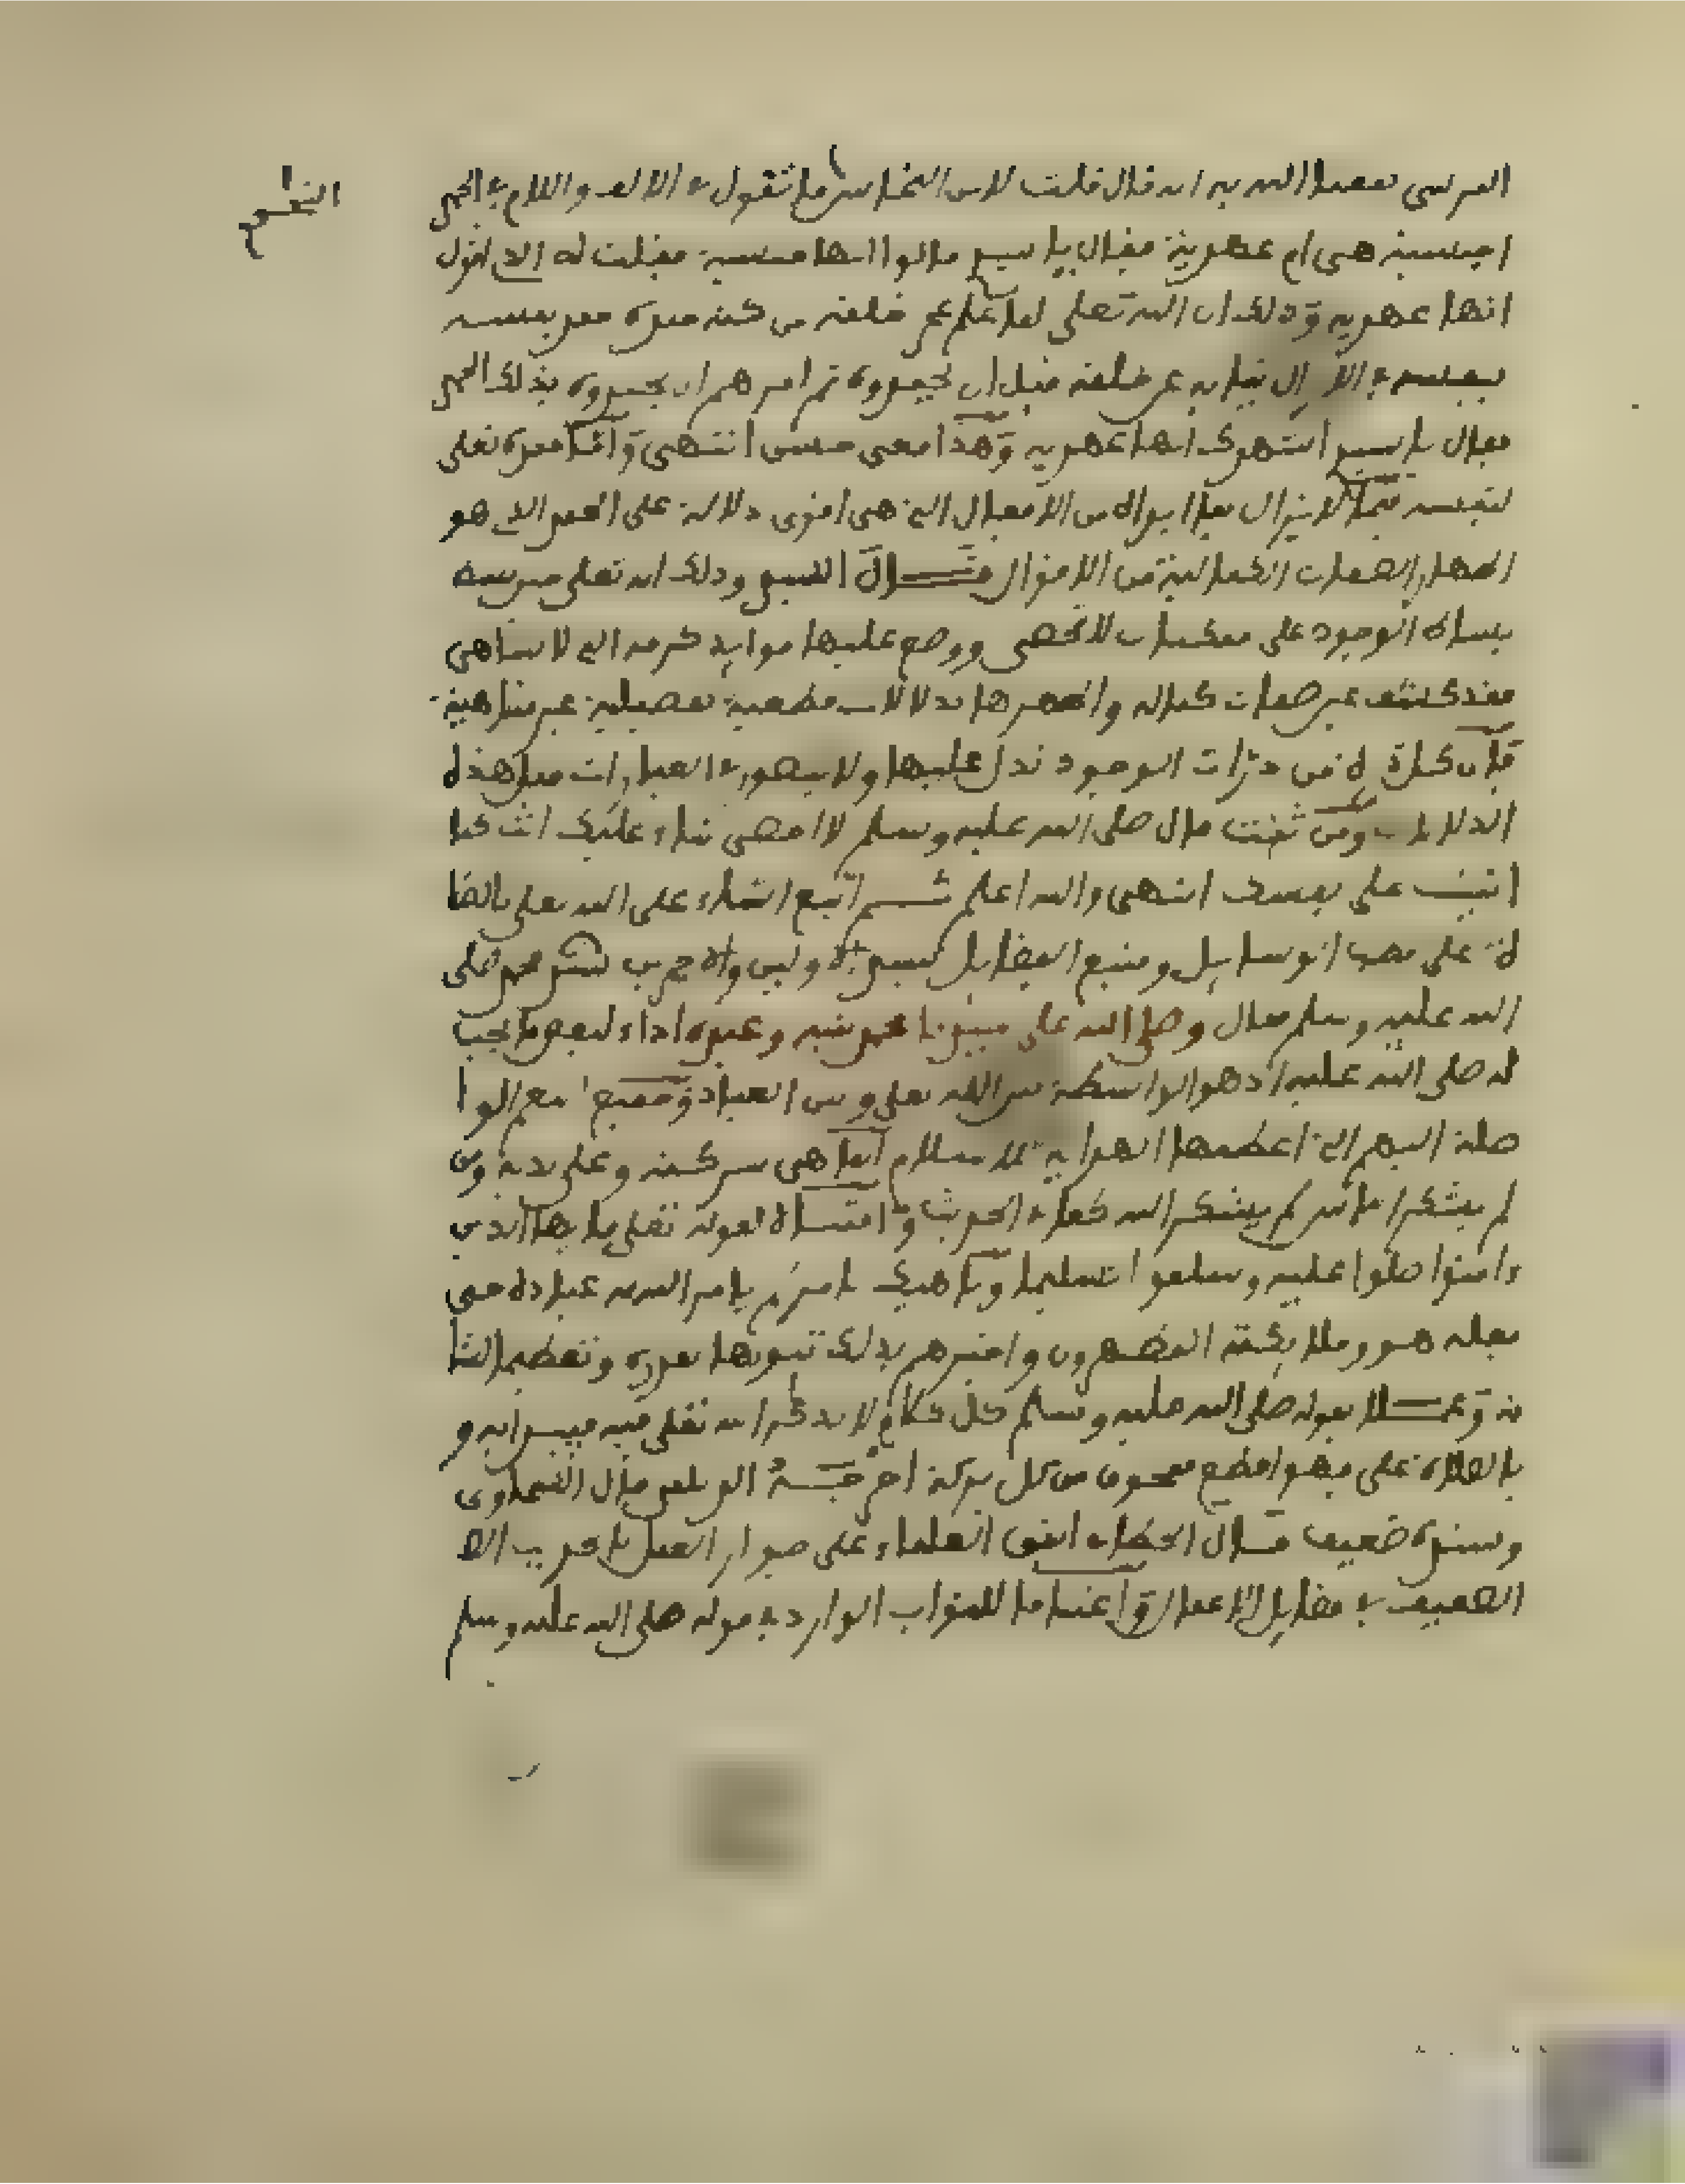 المرسي نفعنا الله به انه قال قلت لابن النحاس ما تقول في الالف واللام في الحمد
اجنسية هي ام عهدية فقال يا سيدي قالوا انها جنسية فقلت له الذي اقول
انها عهدية وذلك ان الله تعلى لما علم عجز خلقه عن كنه حمده حمد نفسه
بنفسه في الازل نيابة عن خلقه قبل ان يحمدوه ثم امرهم ان يحمدوه بذلك الحمد
فقال يا سيدي اشهدك انها عهدية وهذا معنى حسن انتهى واما حمده تعلى
لنفسه فيما لا يزال بما ابداه من الافعال التي هي اقوى دلالة على الحمد الذي هو
اظهار الصفات الكمالية من الاقوال قال السيد وذلك انه تعلى حين بسط
بساط الوجود على ممكنات لا تحصى ووضع عليها موايد كرمه التي لا تتناهى
فقد كشف عن صفات كماله واظهرها بدلالات قطعية تفصيلية غير متناهية
فان كل ذرة من ذرات الوجود تدل عليها ولا يتصور في العبارات مثل هذه
الدلالات ومن ثمت قال صلى الله عليه وسلم لا احصي ثناء عليك انت كما
اثنيت على نفسك انتهى والله اعلم ثم اتبع الثناء على الله تعلى بالصلا
ة على مهب الوسايل ومنبع الفضايل سيد الاولين والاخرين محمد صلى
الله عليه وسلم فقال وصلى الله على سيدنا محمد نبيه وعبده اداء لبعض ما يجب
له صلى الله عليه اذ هو الواسطة بين الله تعلى وبين العباد وجميع النعم الوا
صلة اليهم التي اعظمها الهداية للاسلام انما هي ببركته وعلى يديه ومن
لم يشكر الناس لم يشكر الله كما في الحديث وامتثالا لقوله تعلى يايها الذين
ءامنوا صلوا عليه وسلموا تسليما وناهيك بامر يامر الله به عباده حتى
فعله هو وملايكته المطهرون واخبرهم بذلك تنويها بقدره وتعظيما لشا
نه وعملا بقوله صلى الله عليه وسلم كل كلام لا يذكر الله تعلى فيه فيبدا به و
بالصلاة علي فهو اقطع ممحوق من كل بركة اخرجه الديلمي قال السخاوي
وسنده ضعيف قال الحطاب اتفق العلماء على جواز العمل بالحديث
الضعيف في فضايل الاعمال واغتناما للثواب الوارد في قوله صلى الله عليه وسلم